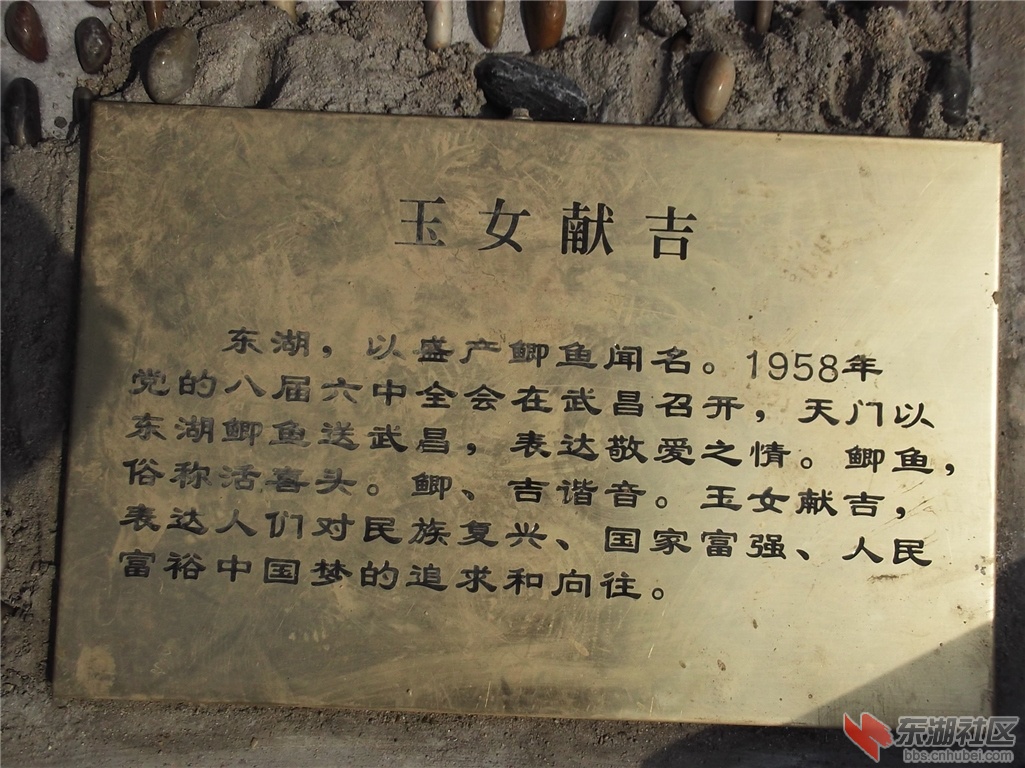 玉女献吉
东湖，以盛产鲫鱼闻名。1958年
党的八届六中全会在武昌召开，天门以
东湖鲫鱼送武昌，表达敬爱之情。鲫鱼，
俗称活喜头。鲫、吉谐音。玉女献吉，
表达人们对民族复兴、国家富强、人民
富裕中国梦的追求和向往。
东湖社区
bbs.cnhubei.com